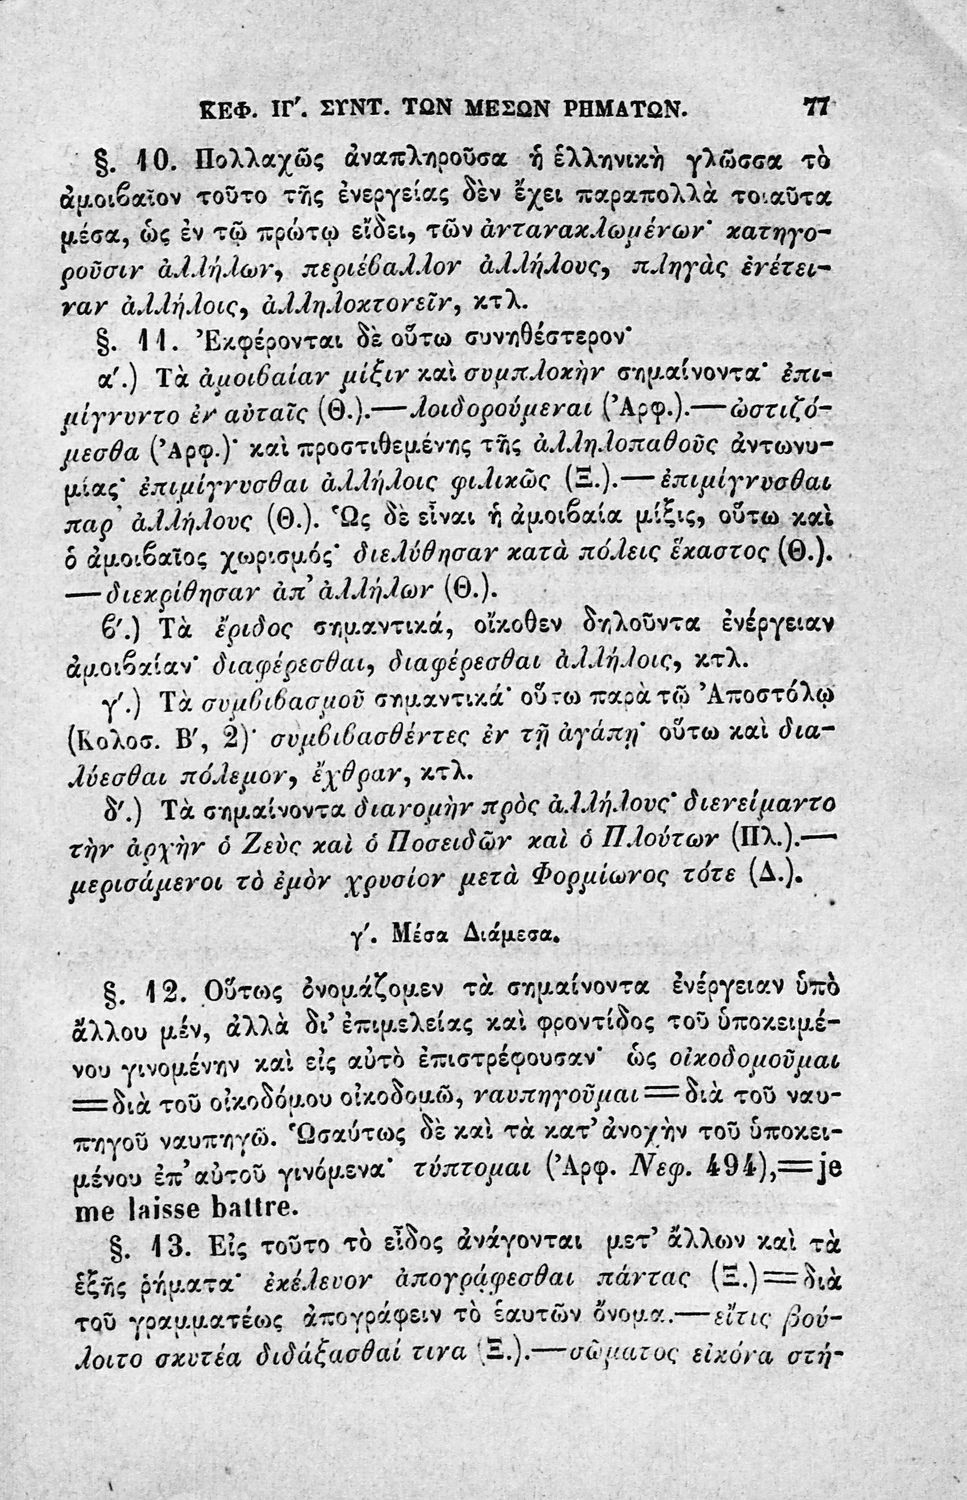 ΚΕΦ. ΙΓ′. ΣΥΝΤ. ΤΩΝ ΜΕΣΩΝ ΡΗΜΑΤΩΝ. 77
§. 10. Πολλαχῶς ἀναπληροῦσα ἡ ἑλληνικὴ γλῶσσα τὸ
ἀμοιβαῖον τοῦτο τῆς ἐνεργείας δὲν ἔχει παραπολλὰ τοιαῦτα
μέσα, ὡς ἐν τῷ πρώτῳ εἴδει, τῶν ἀντανακλωμένων· κατηγο-
ροῦσιν ἀλλήλων, περιέβαλλον ἀλλήλους, πληγὰς ἐνέτει-
ναν ἀλλήλοις, ἀλληλοκτονεῖν, κτλ.
§. 11. Ἐκφέρονται δὲ οὕτω συνηθέστερον·
α′.) Τὰ ἀμοιβαίαν μίξιν καὶ συμπλοκὴν σημαίνοντα· ἐπι-
μίγνυντο ἐν αὐταῖς (Θ.).—λοιδορούμεναι (Ἀρφ.).—ὠστιζό-
μεσθα (Ἀρφ.)· καὶ προστιθεμένης τῆς ἀλληλοπαθοῦς ἀντωνυ-
μίας· ἐπιμίγνυσθαι ἀλλήλοις φιλικῶς (Ξ.).—ἐπιμίγνυσθαι
παρ' ἀλλήλους (Θ.). Ὡς δὲ εἶναι ἡ ἀμοιβαία μίξις, οὕτω καὶ
ὁ ἀμοιβαῖος χωρισμός· διελύθησαν κατὰ πόλεις ἕκαστος (Θ.).
—διεκρίθησαν ἀπ' ἀλλήλων (Θ.).
β′.) Τὰ ἔριδος σημαντικά, οἴκοθεν δηλοῦντα ἐνέργειαν
ἀμοιβαίαν· διαφέρεσθαι, διαφέρεσθαι ἀλλήλοις, κτλ.
γ′.) Τὰ συμβιβασμοῦ σημαντικά· οὕτω παρὰ τῷ Ἀποστόλῳ
(Κολοσ. Β′, 2)· συμβιβασθέντες ἐν τῇ ἀγάπῃ· οὕτω καὶ δια-
λύεσθαι πόλεμον, ἔχθραν, κτλ.
δ′.) Τὰ σημαίνοντα διανομὴν πρὸς ἀλλήλους· διενείμαντο
τὴν ἀρχὴν ὁ Ζεὺς καὶ ὁ Ποσειδῶν καὶ ὁ Πλούτων (Πλ.).—
μερισάμενοι τὸ ἐμὸν χρυσίον μετὰ Φορμίωνος τότε (Δ.).
γ′. Μέσα Διάμεσα.
§. 12. Οὕτως ὀνομάζομεν τὰ σημαίνοντα ἐνέργειαν ὑπὸ
ἄλλου μέν, ἀλλὰ δι' ἐπιμελείας καὶ φροντίδος τοῦ ὑποκειμέ-
νου γινομένην καὶ εἰς αὐτὸ ἐπιστρέφουσαν· ὡς οἰκοδομοῦμαι
=διὰ τοῦ οἰκοδόμου οἰκοδομῶ, ναυπηγοῦμαι=διὰ τοῦ ναυ-
πηγοῦ ναυπηγῶ. Ὡσαύτως δὲ καὶ τὰ κατ' ἀνοχὴν τοῦ ὑποκει-
μένου ἐπ' αὐτοῦ γινόμενα· τύπτομαι (Ἀρφ. Νεφ. 494),=je
me laisse battre.
§. 13. Εἰς τοῦτο τὸ εἶδος ἀνάγονται μετ' ἄλλων καὶ τὰ
ἑξῆς ῥήματα· ἐκέλευον ἀπογράφεσθαι πάντας (Ξ.)=διὰ
τοῦ γραμματέως ἀπογράφειν τὸ ἑαυτῶν ὄνομα.—εἴτις βού-
λοιτο σκυτέα διδάξασθαί τινα (Ξ.).—σώματος εἰκόνα στή-